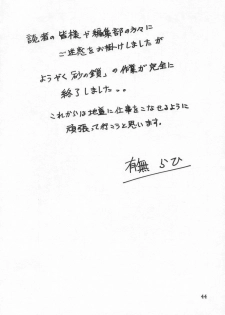 読者の皆様や編集部の方々に
ご迷惑をお掛けしましたが
ようやく「砂の鎖」の作業が完全に
終了しました。。
これからは地道に仕事をこなせるように
頑張って行こうと思います。
有無 らひ
44